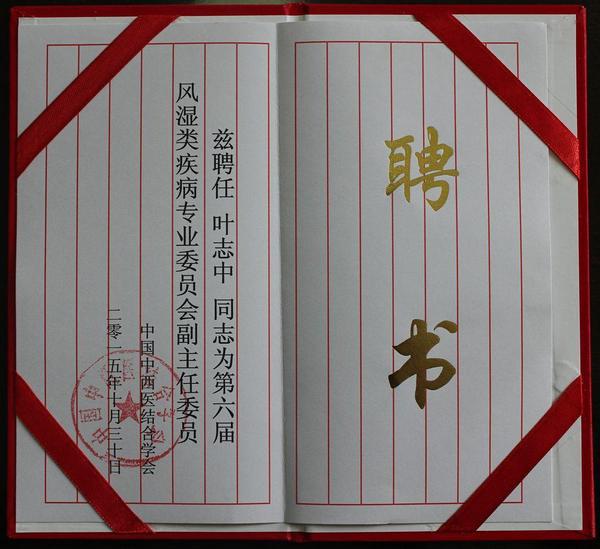 聘书
兹聘任 叶志中 同志为第六届
风湿类疾病专业委员会副主任委员
中国中西医结合学会
二零一五年十月三十日